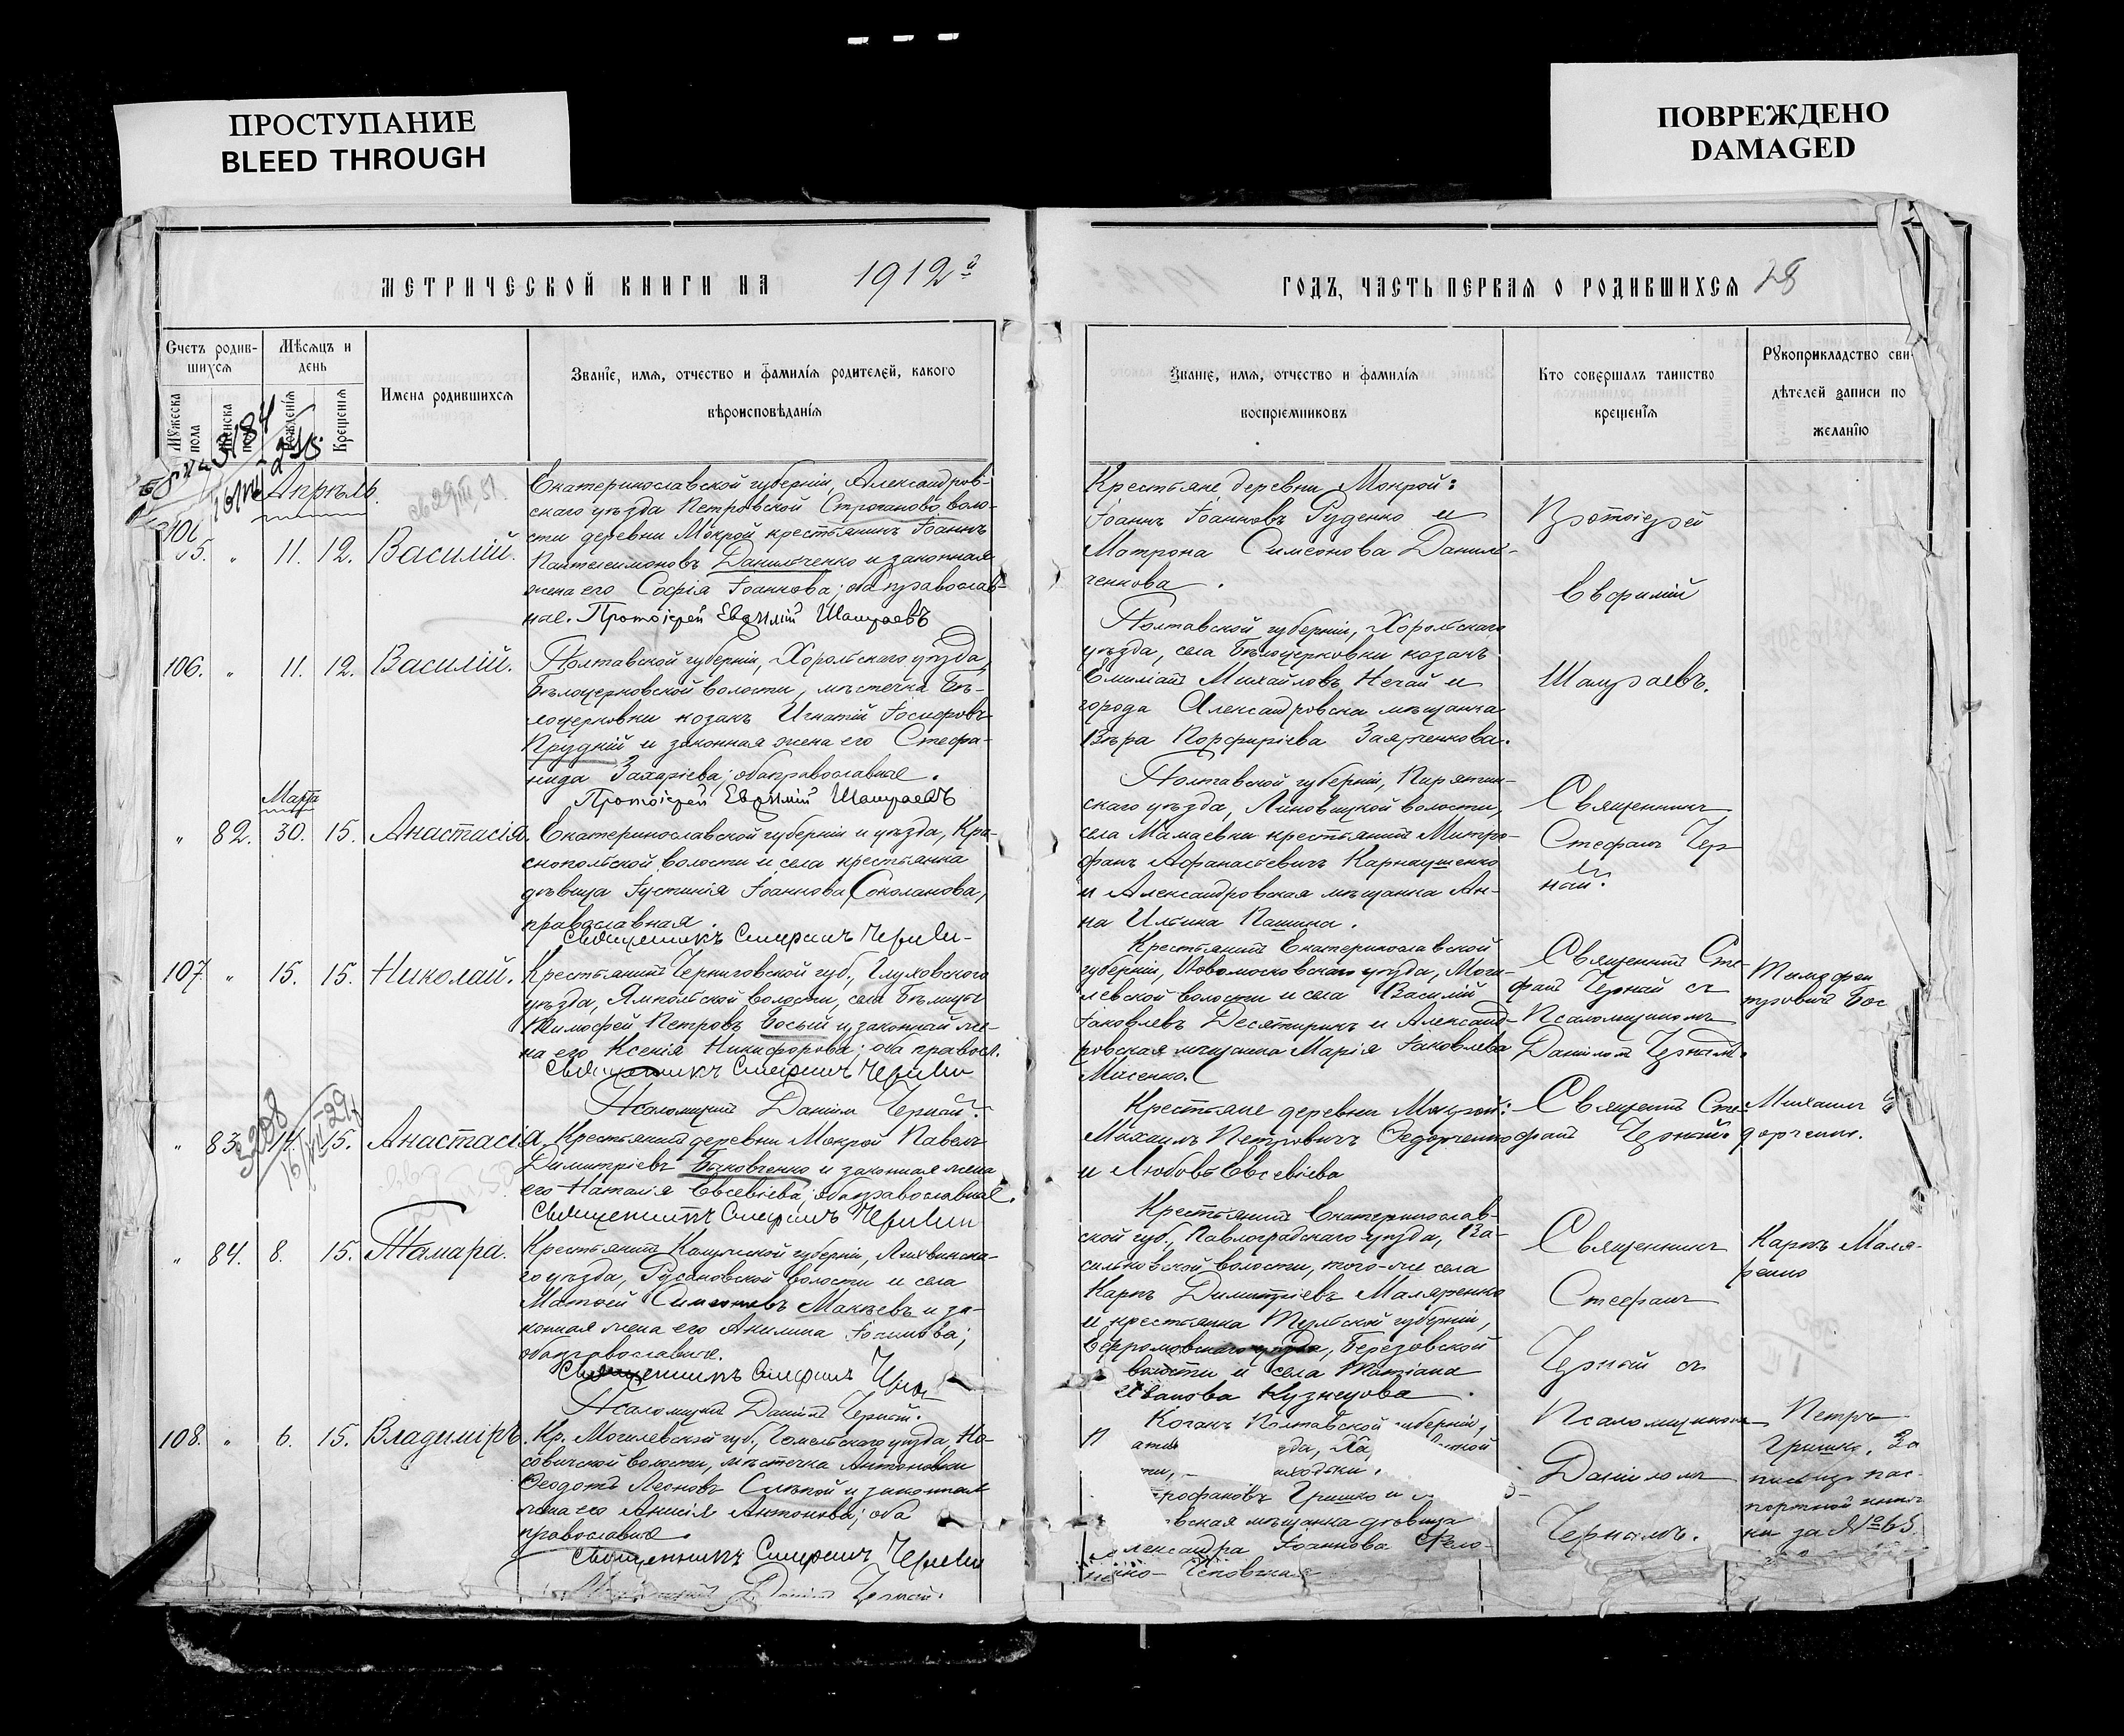 ПРОСТУПАНИЕ
BLEED THROUGH
ПОВРЕЖДЕНО
DAMAGED
МЕТРИЧЕСКОЙ КНИГИ НА 1912й
ГОДЪ, ЧАСТЬ ПЕРВАЯ О РОДИВШИХСЯ 28
Счетъ родив-
шихся
Мѣсяцъ и
день
Мужеска
пола
Крещенія
Имена родившихся
Званіе, имя, отчество и фамилія родителей, какого
вѣроисповѣданія
Званіе, имя, отчество и фамилія
воспріемниковъ
Кто совершалъ таинство
крещенія
Рукоприкладство сви-
дѣтелей записи по
желанію
Апрѣль.
11. 12. Василій.
Екатеринославской губерніи, Александров-
скаго уѣзда Петровской Строганово воло-
сти деревни Мокрой крестьянинъ Іоаннъ
Пантелеимоновъ Данильченко и законная
жена его Софія Іоаннова; оба православ-
ные. Протоіерей Евфимій Шамраевъ
Крестьяне деревни Мокрой:
Іоаннъ Іоанновъ Руденко и
Матрона Симеонова Даниль-
ченкова.
Протоіерей
Евфимій
Шамраевъ.
106. " 11. 12. Василій.
Полтавской губерніи, Хорольскаго уѣзда,
Бѣлоцерковской волости, мѣстечка Бѣ-
лоцерковки козакъ Игнатій Іосифовъ
Прудкій и законная жена его Стефа-
нида Захаріева; оба православные.
Протоіерей Евфимій Шамраевъ
Полтавской губерніи, Хорольскаго
уѣзда, села Бѣлоцерковки козакъ
Емиліанъ Михайловъ Нечай и
города Александровска мѣщанка
Вѣра Порфиріева Заярченкова.
Марта
" 82. 30. 15. Анастасія.
Екатеринославской губерніи и уѣзда, Кра-
снопольской волости и села крестьянка
дѣвица Іустинія Іоаннова Соколанова,
православная.
Священникъ Стефанъ Черный
Полтавской губерніи, Пирятин-
скаго уѣзда, Линовицкой волости,
села Мамаевки крестьянинъ Митро-
фанъ Афанасьевичъ Карнаушенко
и Александровская мѣщанка Ан-
на Ильина Пашина.
Священникъ
Стефанъ Чер-
ный.
107. " 15. 15. Николай.
Крестьянинъ Черниговской губ., Глуховскаго
уѣзда, Ямпольской волости, села Бѣлицы
Тимофей Петровъ Босый и законная же-
на его Ксенія Никифорова; оба правосл.
Священникъ Стефанъ Черный
Псаломщикъ Даніилъ Черный.
Крестьянинъ Екатеринославской
губерніи, Новомосковскаго уѣзда, Моги-
левской волости и села Василій
Іаковлевъ Десятирикъ и Александ-
ровская мѣщанка Марія Іаковлева
Священникъ Сте-
фанъ Черный съ
Псаломщикомъ
Даніиломъ Чернымъ.
Тимофей
Петровичъ Бос
" 83. 14. 15. Анастасія.
Крестьянинъ деревни Мокрой Павелъ
Димитріевъ Баковченко и законная жена
его Наталія Евсевіева; оба православные.
Священникъ Стефанъ Черный
Крестьяне деревни Мокрой:
Михаилъ Петровичъ Федорченко
и Любовь Евсевіева
Священникъ Сте-
фанъ Черный.
Михаилъ
дорченко.
" 84. 8. 15. Тамара.
Крестьянинъ Калужской губерніи, Лихвинска-
го уѣзда, Русановской волости и села
Матѳей Симеоновъ Макѣевъ и за-
конная жена его Акилина Іоаннова;
оба православные.
Священникъ Стефанъ Черный
Псаломщикъ Даніилъ Черный.
Крестьянинъ Екатеринослав-
ской губ., Павлоградскаго уѣзда, Ва-
сильковской волости, того-же села
Карпъ Димитріевъ Маляренко
и крестьянка Тульской губерніи,
Ефремовскаго уѣзда, Березовской
волости и села Татіана
Иванова Кузнецова.
Священникъ
Стефанъ
Черный съ
Псаломщикомъ
Даніиломъ
Чернымъ.
Карпъ Маля-
ренко
108. " 6. 15. Владиміръ.
Кр. Могилевской губ., Гомельскаго уѣзда, Но-
совичской волости, мѣстечка Антоновки
Ѳеодотъ Леоновъ Слѣпой и законная
жена его Анисія Антонова; оба
православные.
Священникъ Стефанъ Черный
Псаломщикъ Даніилъ Черный.
Козакъ Полтавской губерніи,
Гришко и
вская мѣщанка дѣвица
лександра Іоаннова
Петръ
Гришко. За